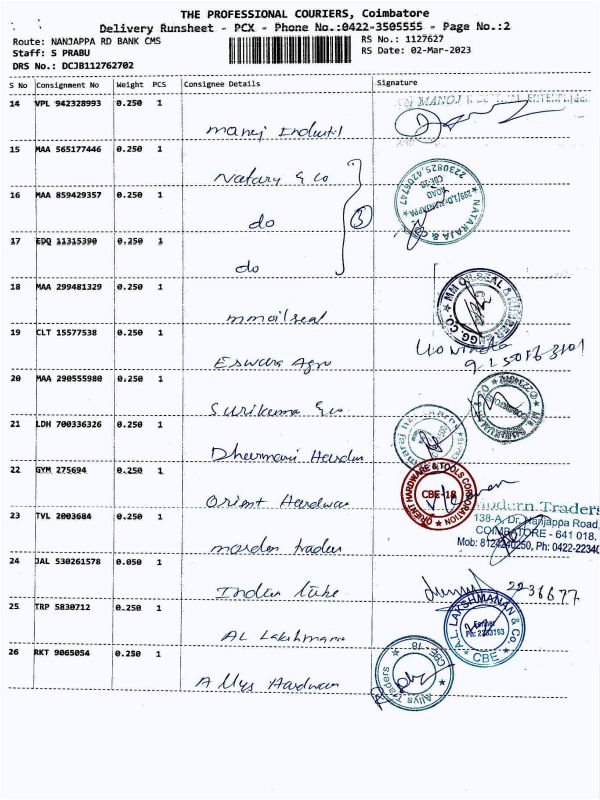 THE PROFESSIONAL COURIERS, Coimbatore
Delivery Runsheet - PCX - Phone No.:0422-3505555 - Page No.:2
Route: NANJAPPA RD BANK CMS
RS No.: 1127627
Staff: S PRABU
RS Date: 02-Mar-2023
DRS No.: DCJB112762702
S No Consignment No Weight PCS Consignee Details Signature
14 VPL 942328993 0.250 1
MANOJ
Manoj
15 MAA 565177446 0.250 1
Natary & co
16 MAA 859429357 0.250 1
do
3
NATARAJA & CO
299/1, Dr. NANJAPPA ROAD
CBE-18
2230825, 4209747
17 EDQ 11315390 0.250 1
do
18 MAA 299481329 0.250 1
mmoilseal
MM OIL SEAL & RUBBER
19 CLT 15577538 0.250 1
Eswara Agro
20 MAA 290555980 0.250 1
Surikuma & co
21 LDH 700336326 0.250 1
22 GYM 275694 0.250 1
Orient Hardwar
ORIENT HARDWARE & TOOLS CORPORATION
CBE-18
23 TVL 2003684 0.250 1
morden traders
Modern Traders
138-A, Dr. Nanjappa Road,
COIMBATORE - 641 018.
Mob: 8124240250, Ph: 0422-22340
24 JAL 530261578 0.050 1
Indian
2236677
25 TRP 5830712 0.250 1
AL Lakshmana
A.L. LAKSHMANAN & Co.
Ph: 2233193
CBE
26 RKT 9065054 0.250 1
Allys Hardwar
Allys Traders
CBE-18